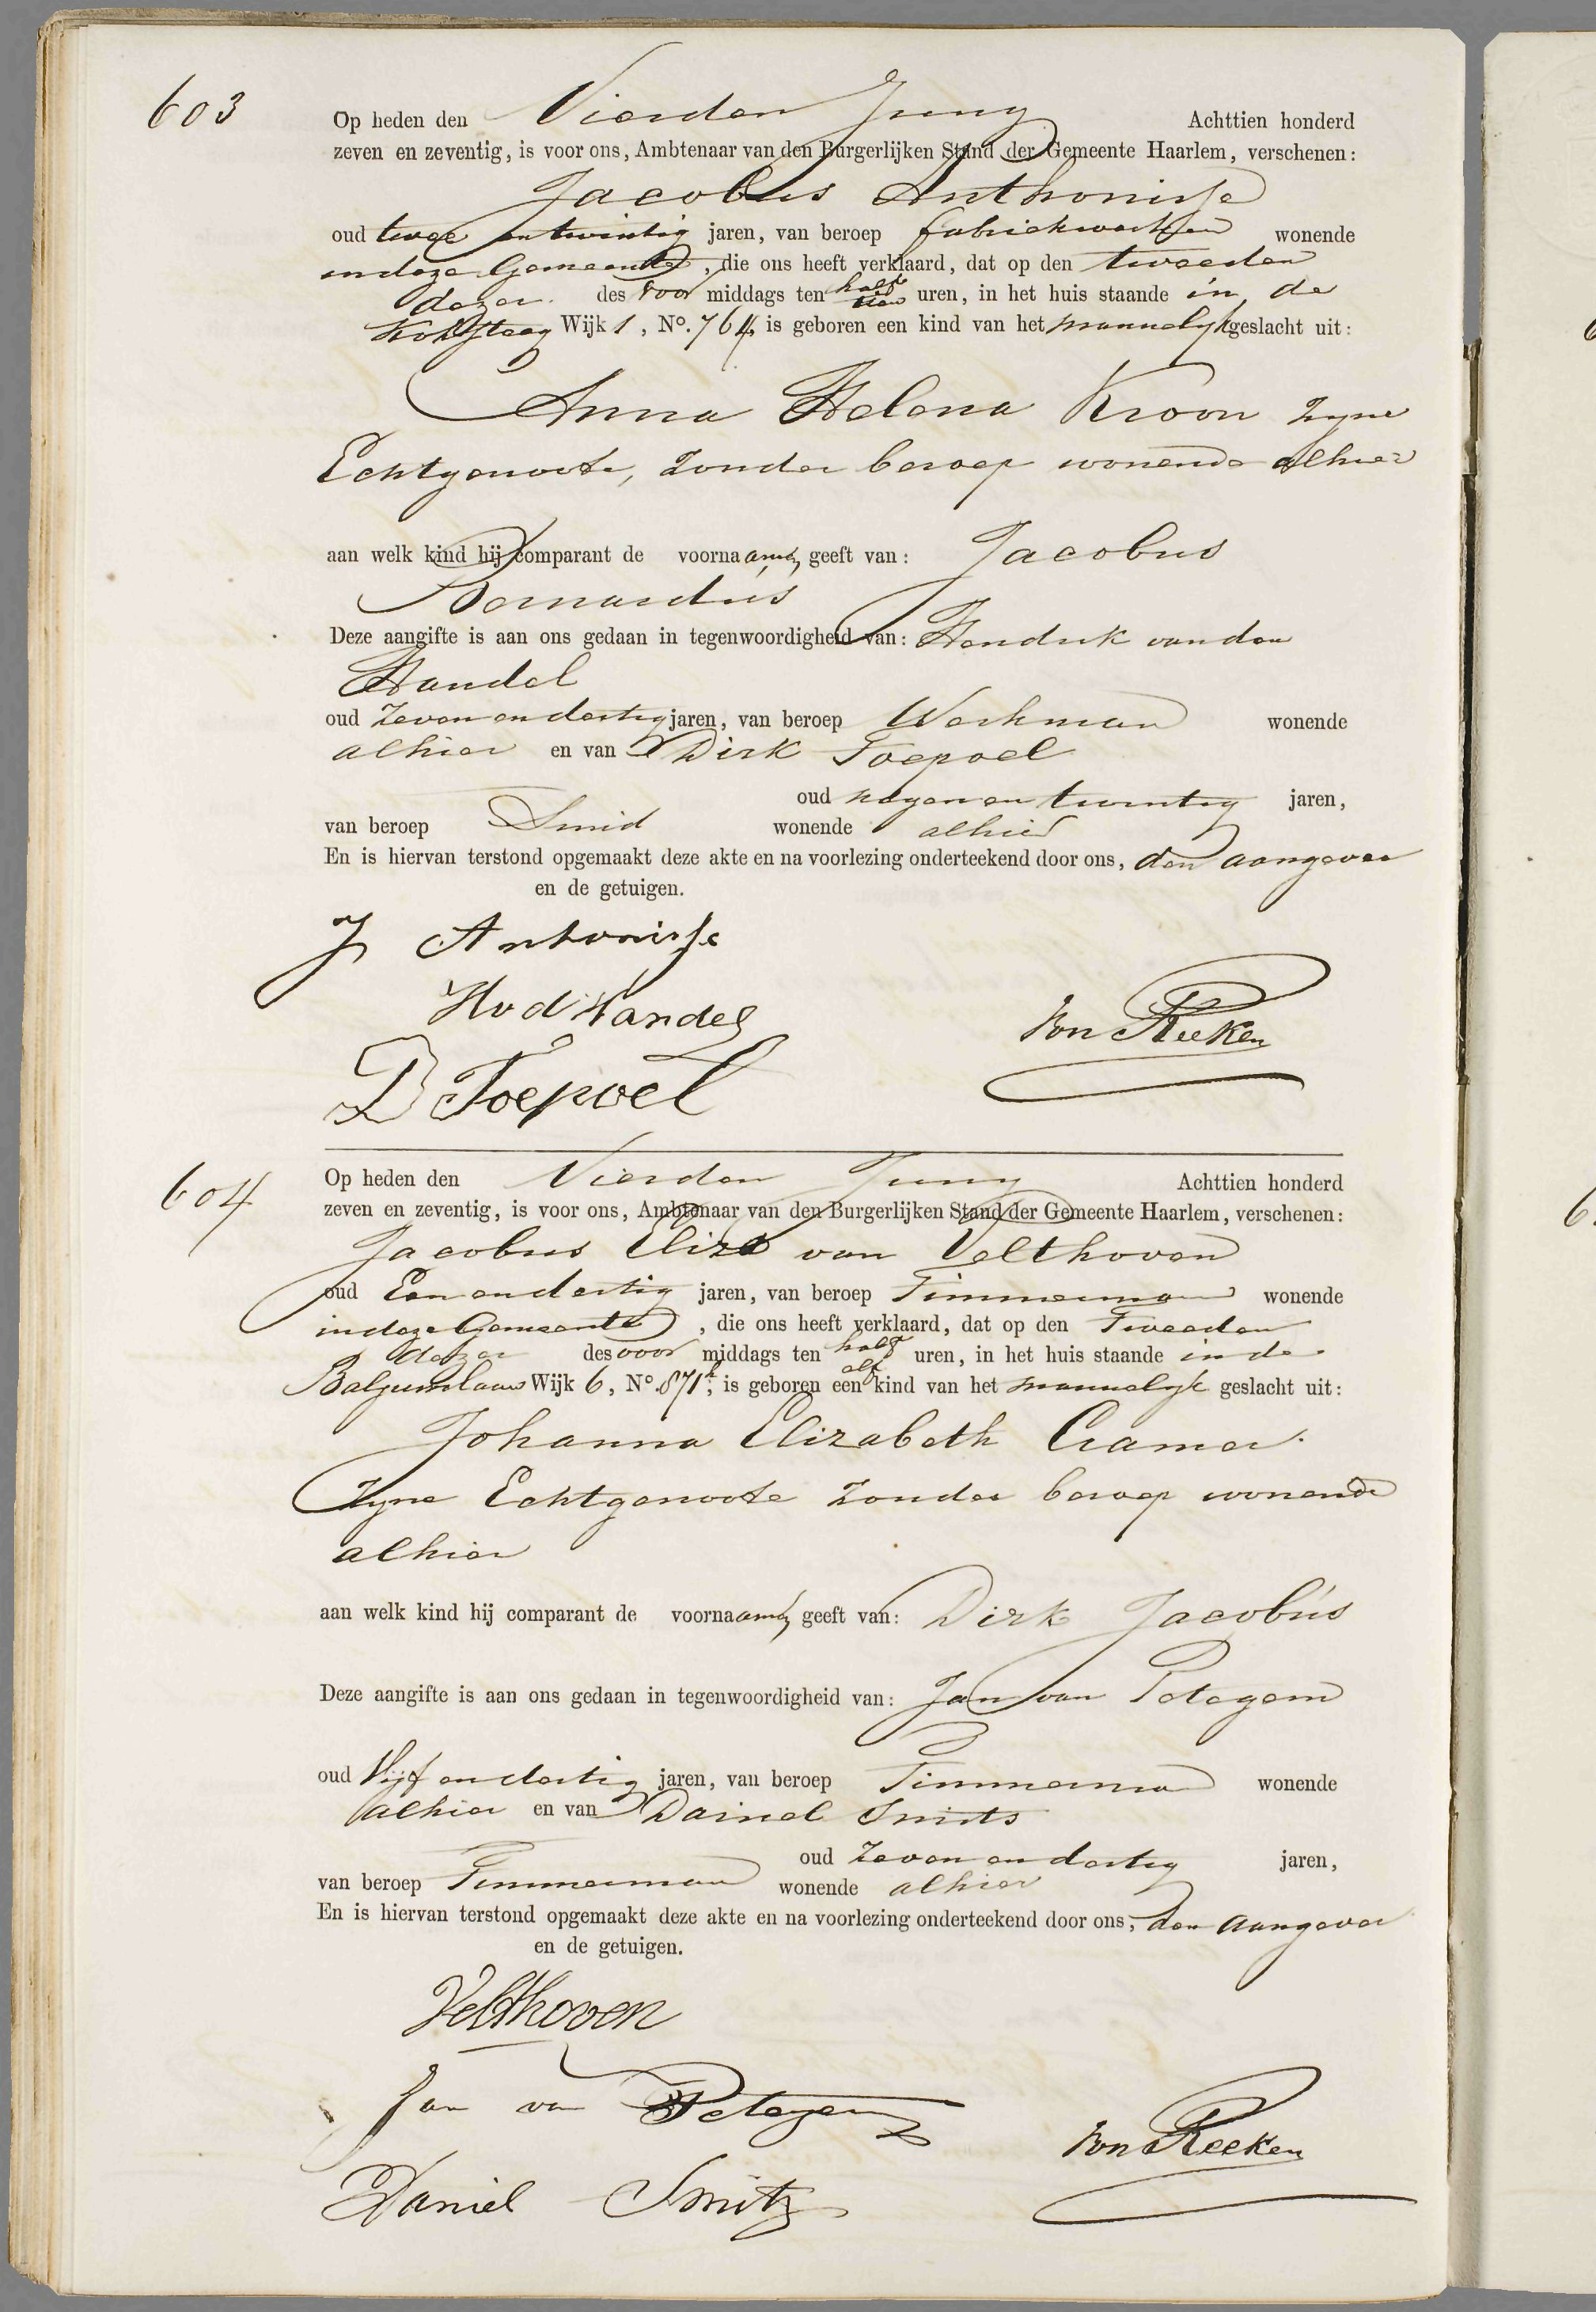 603
Op heden den Vierden Juny Achttien honderd
zeven en zeventig, is voor ons, Ambtenaar van den Burgerlijken Stand der Gemeente Haarlem, verschenen:
Jacobus Anthonisse
oud twee en twintig jaren, van beroep fabriekwerker wonende
in deze Gemeente, die ons heeft verklaard, dat op den tweeden
dezer des voor middags ten half tien uren, in het huis staande in de
Wijk 1, No. 764, is geboren een kind van het mannelyk geslacht uit:
Anna Helena Kroon zyne
Echtgenoote, zonder beroep wonende alhier
aan welk kind hij comparant de voornaamen geeft van: Jacobus
Bernardus
Deze aangifte is aan ons gedaan in tegenwoordigheid van: Hendrik van den
Handel
oud zeven en dertig jaren, van beroep Werkman wonende
alhier en van Dirk Toepoel
oud negen en twintig jaren,
van beroep Smid wonende alhier
En is hiervan terstond opgemaakt deze akte en na voorlezing onderteekend door ons, den aangever
en de getuigen.
J Antonisse
H v d Handel
D Toepoel
Von Reeken
604
Op heden den Vierden Juny Achttien honderd
zeven en zeventig, is voor ons, Ambtenaar van den Burgerlijken Stand der Gemeente Haarlem, verschenen:
Jacobus Eliza van Velthoven
oud Een en dertig jaren, van beroep Timmerman wonende
in deze Gemeente, die ons heeft verklaard, dat op den Tweeden
dezer des voor middags ten half elf uren, in het huis staande in de
Wijk 6, No. 871, is geboren een kind van het mannelyk geslacht uit:
Johanna Elizabeth Cramer
Zyne Echtgenoote zonder beroep wonende
alhier
aan welk kind hij comparant de voornaamen geeft van: Dirk Jacobus
Deze aangifte is aan ons gedaan in tegenwoordigheid van: Jan van Petegem
oud Vijf en dertig jaren, van beroep Timmerman wonende
alhier en van Dainel Smits
oud zeven en dertig jaren,
van beroep Timmerman wonende alhier
En is hiervan terstond opgemaakt deze akte en na voorlezing onderteekend door ons, den aangever
en de getuigen.
Velthoven
Jan van Petegem
Von Reeken
Daniel Smitz